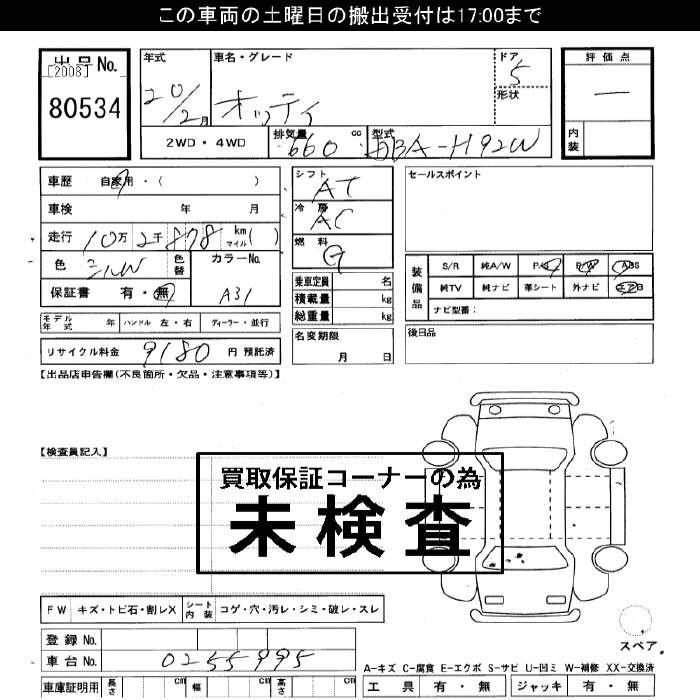 この車両の土曜日の搬出受付は17:00まで
出品No.
[2008]
80534
年式
20/2月
車名・グレード
オッティ
ドア
5
形状
評価点
—
内装
2WD・4WD
排気量
660
cc
型式
DBA-H92W
車歴 自家用・( )
車検 年 月
走行 10万2千878 km マイル( )
色 シルバ
色替
カラーNo.
A31
保証書 有・無
シフト
AT
冷房
AC
燃料
G
乗車定員 名
積載量 kg
総重量 kg
セールスポイント
装備品
S/R 純A/W P/S P/W ABS
純TV 純ナビ 革シート 外ナビ エアB
ナビ型番:
モデル年式 年 ハンドル 左・右 ディーラー・並行
リサイクル料金 9180 円 預託済
名変期限
月 日
後日品
【出品店申告欄(不良箇所・欠品・注意事項等)】
【検査員記入】
買取保証コーナーの為
未検査
FW キズ・トビ石・割レX シート内装 コゲ・穴・汚レ・シミ・破レ・スレ
スペア
登録No.
車台No. 0255995
A-キズ C-腐食 E-エクボ S-サビ U-凹ミ W-補修 XX-交換済
車庫証明用 長さ cm 幅 cm 高さ cm
工具 有・無 ジャッキ 有・無